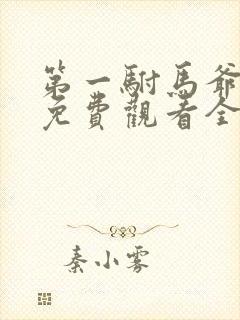 第一駙馬爺
免費觀看全
秦小雾